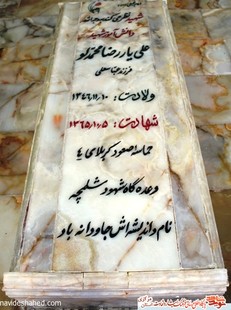 دانش آموز شهید
علی یار رضا محمدلو
فرزند عباسعلی
ولادت: ۱۳۴۶/۱۱/۱۰
شهادت: ۱۳۶۵/۱۰/۵
حماسه صعود کربلای یا
وعده گاه شهود شلمچه
نام و اندیشه اش جاودانه باد
navideshahed.com